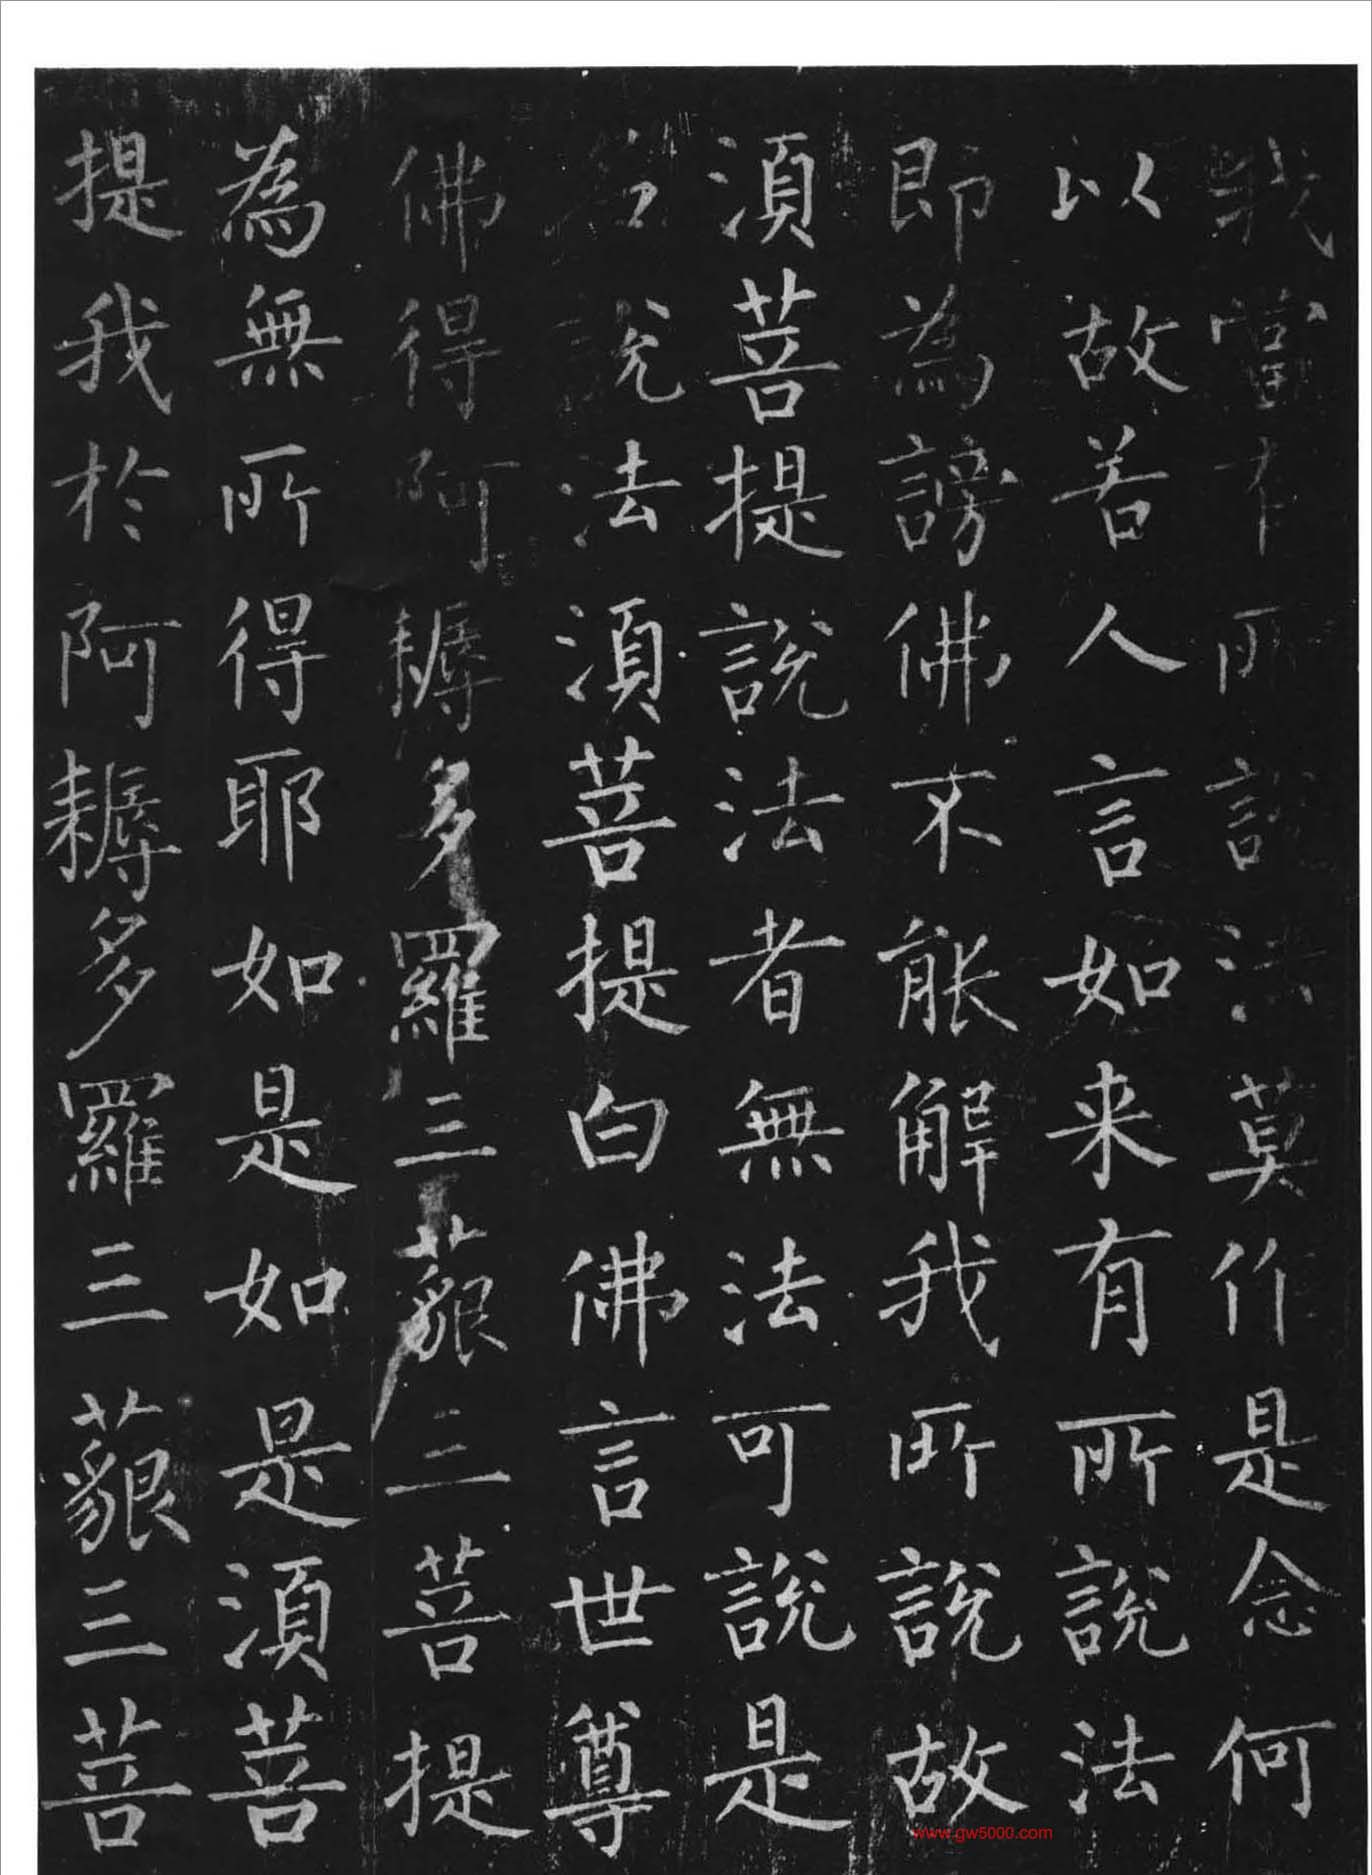 我當有所說法莫作是念何
以故若人言如来有所說法
即為謗佛不能解我所說故
湏菩提說法者無法可說是
名說法湏菩提白佛言世尊
佛得阿耨多羅三藐三菩提
為無所得耶如是如是湏菩
提我於阿耨多羅三藐三菩
www.gw5000.com